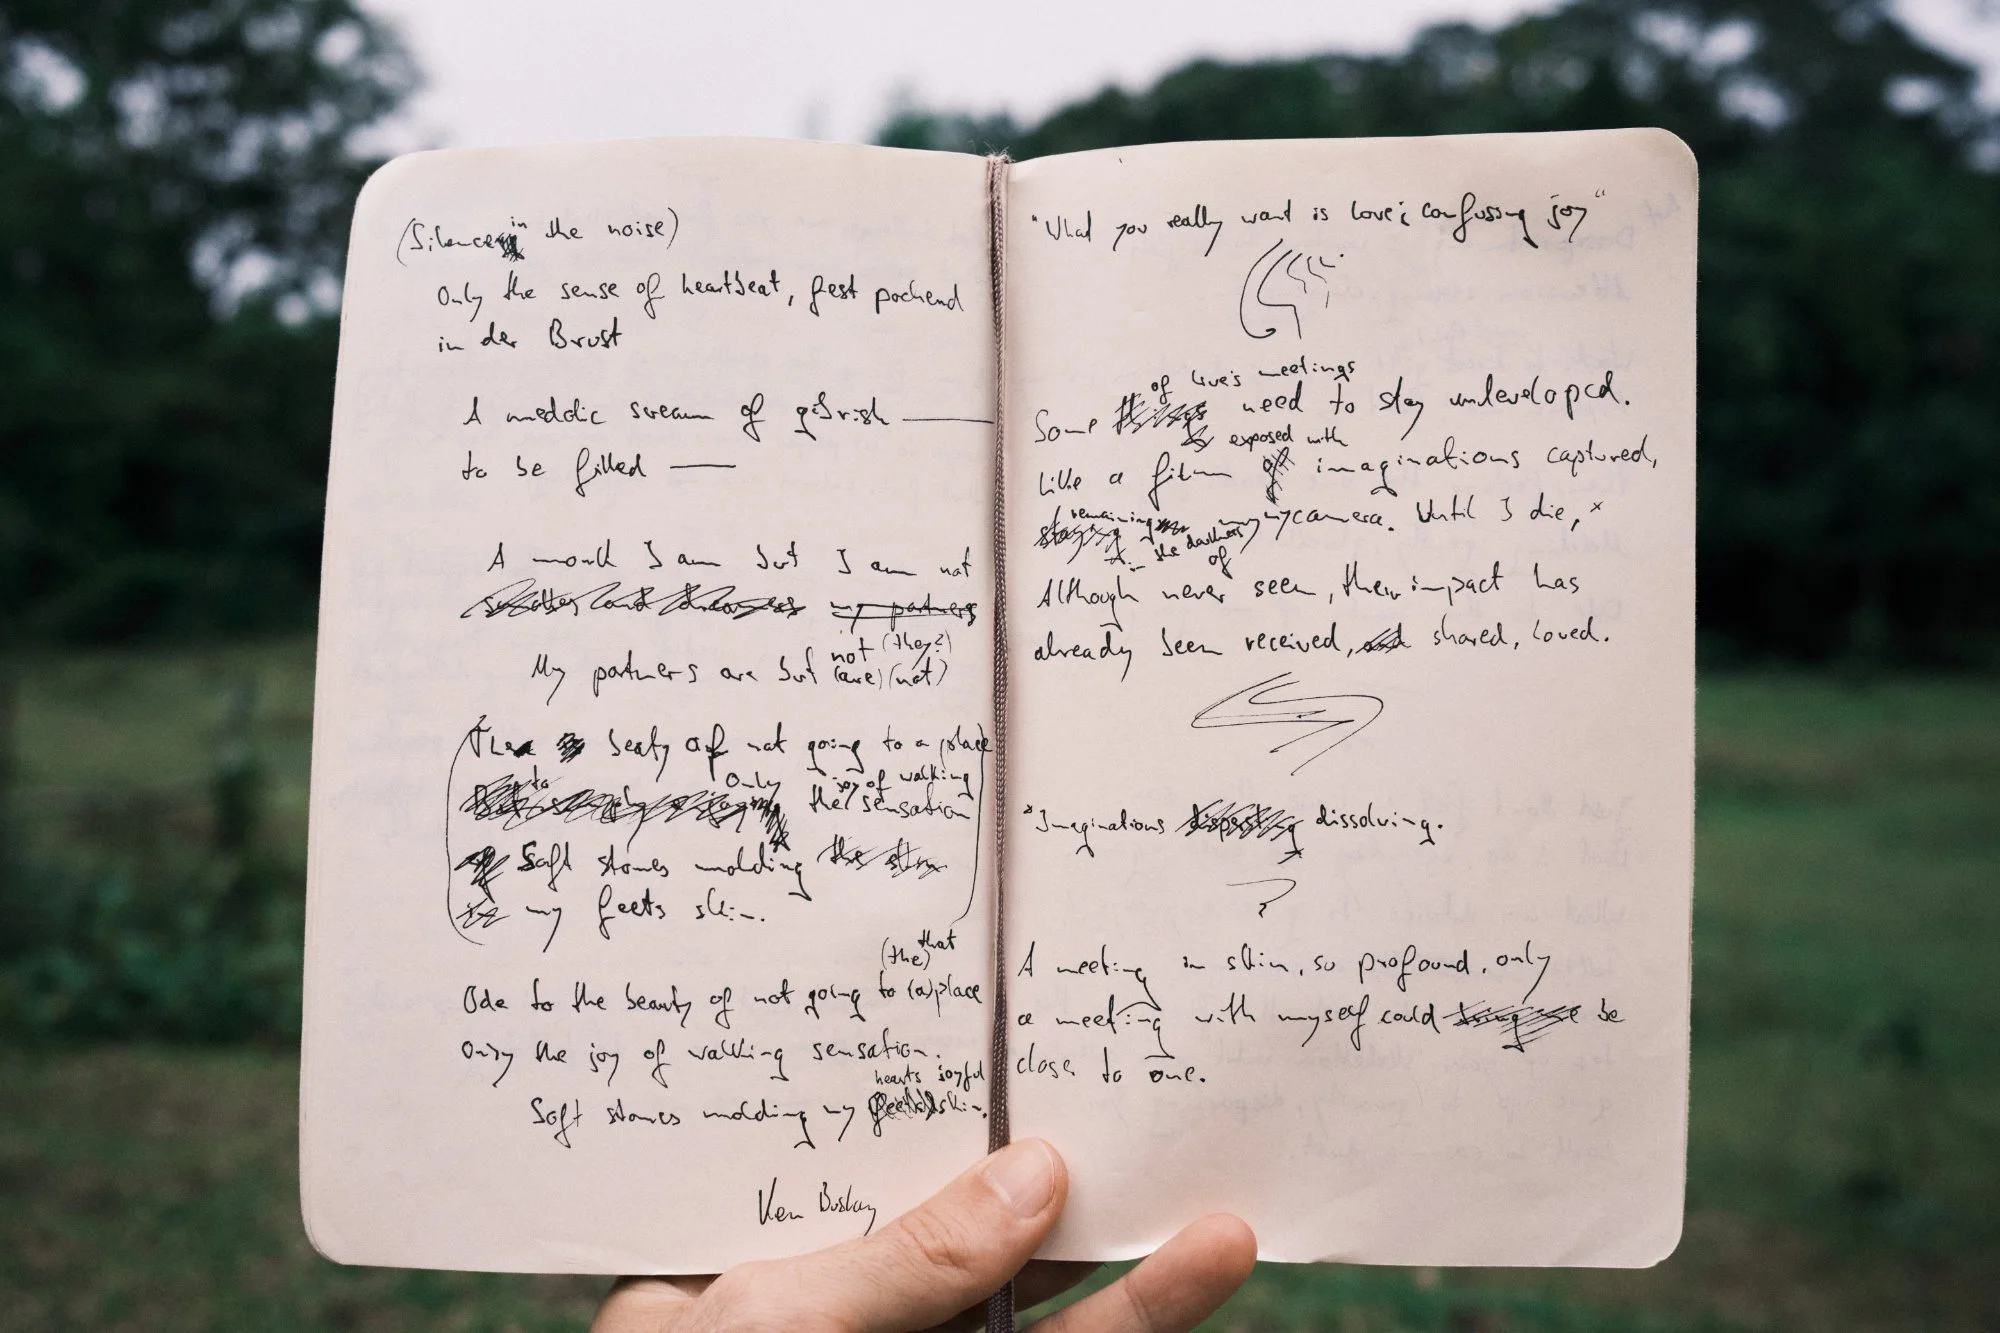 (Silence in the noise)
Only the sense of heartbeat, fest pochend
in der Brust
A meddic scream of gibrish
to be filled
A monk I am but I am not
my partners
not (they?)
My partners are but (are) (not)
The beaty of not going to a place
to only joy of walking
the sensation
Soft stones molding the
my feets skin.
(the) that
Ode to the beauty of not going to (a) place
Only the joy of walking sensation.
hearts joyful
Soft stones molding my skin.
Ken Buslay
"What you really want is love; confusing joy"
of love's meetings
Some things need to stay undeveloped.
exposed with
Like a film of imaginations captured,
remaining
staying my camera. Until I die, *
in the darkness of
Although never seen, their impact has
already been received, and shared, loved.
*Imaginations dissolving.
?
A meeting in skin, so profound, only
a meeting with myself could be
close to one.